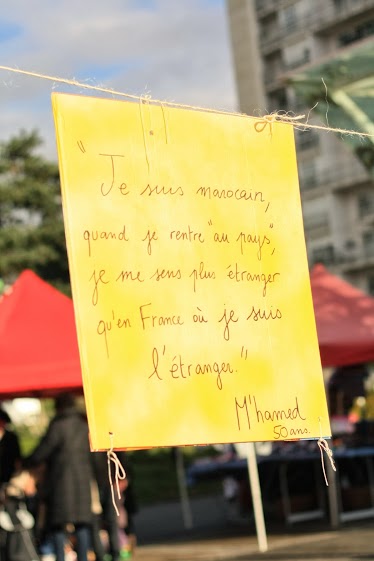 "Je suis marocain,
quand je rentre "au pays",
je me sens plus étranger
qu'en France où je suis
l'étranger."
M'hamed
50 ans.